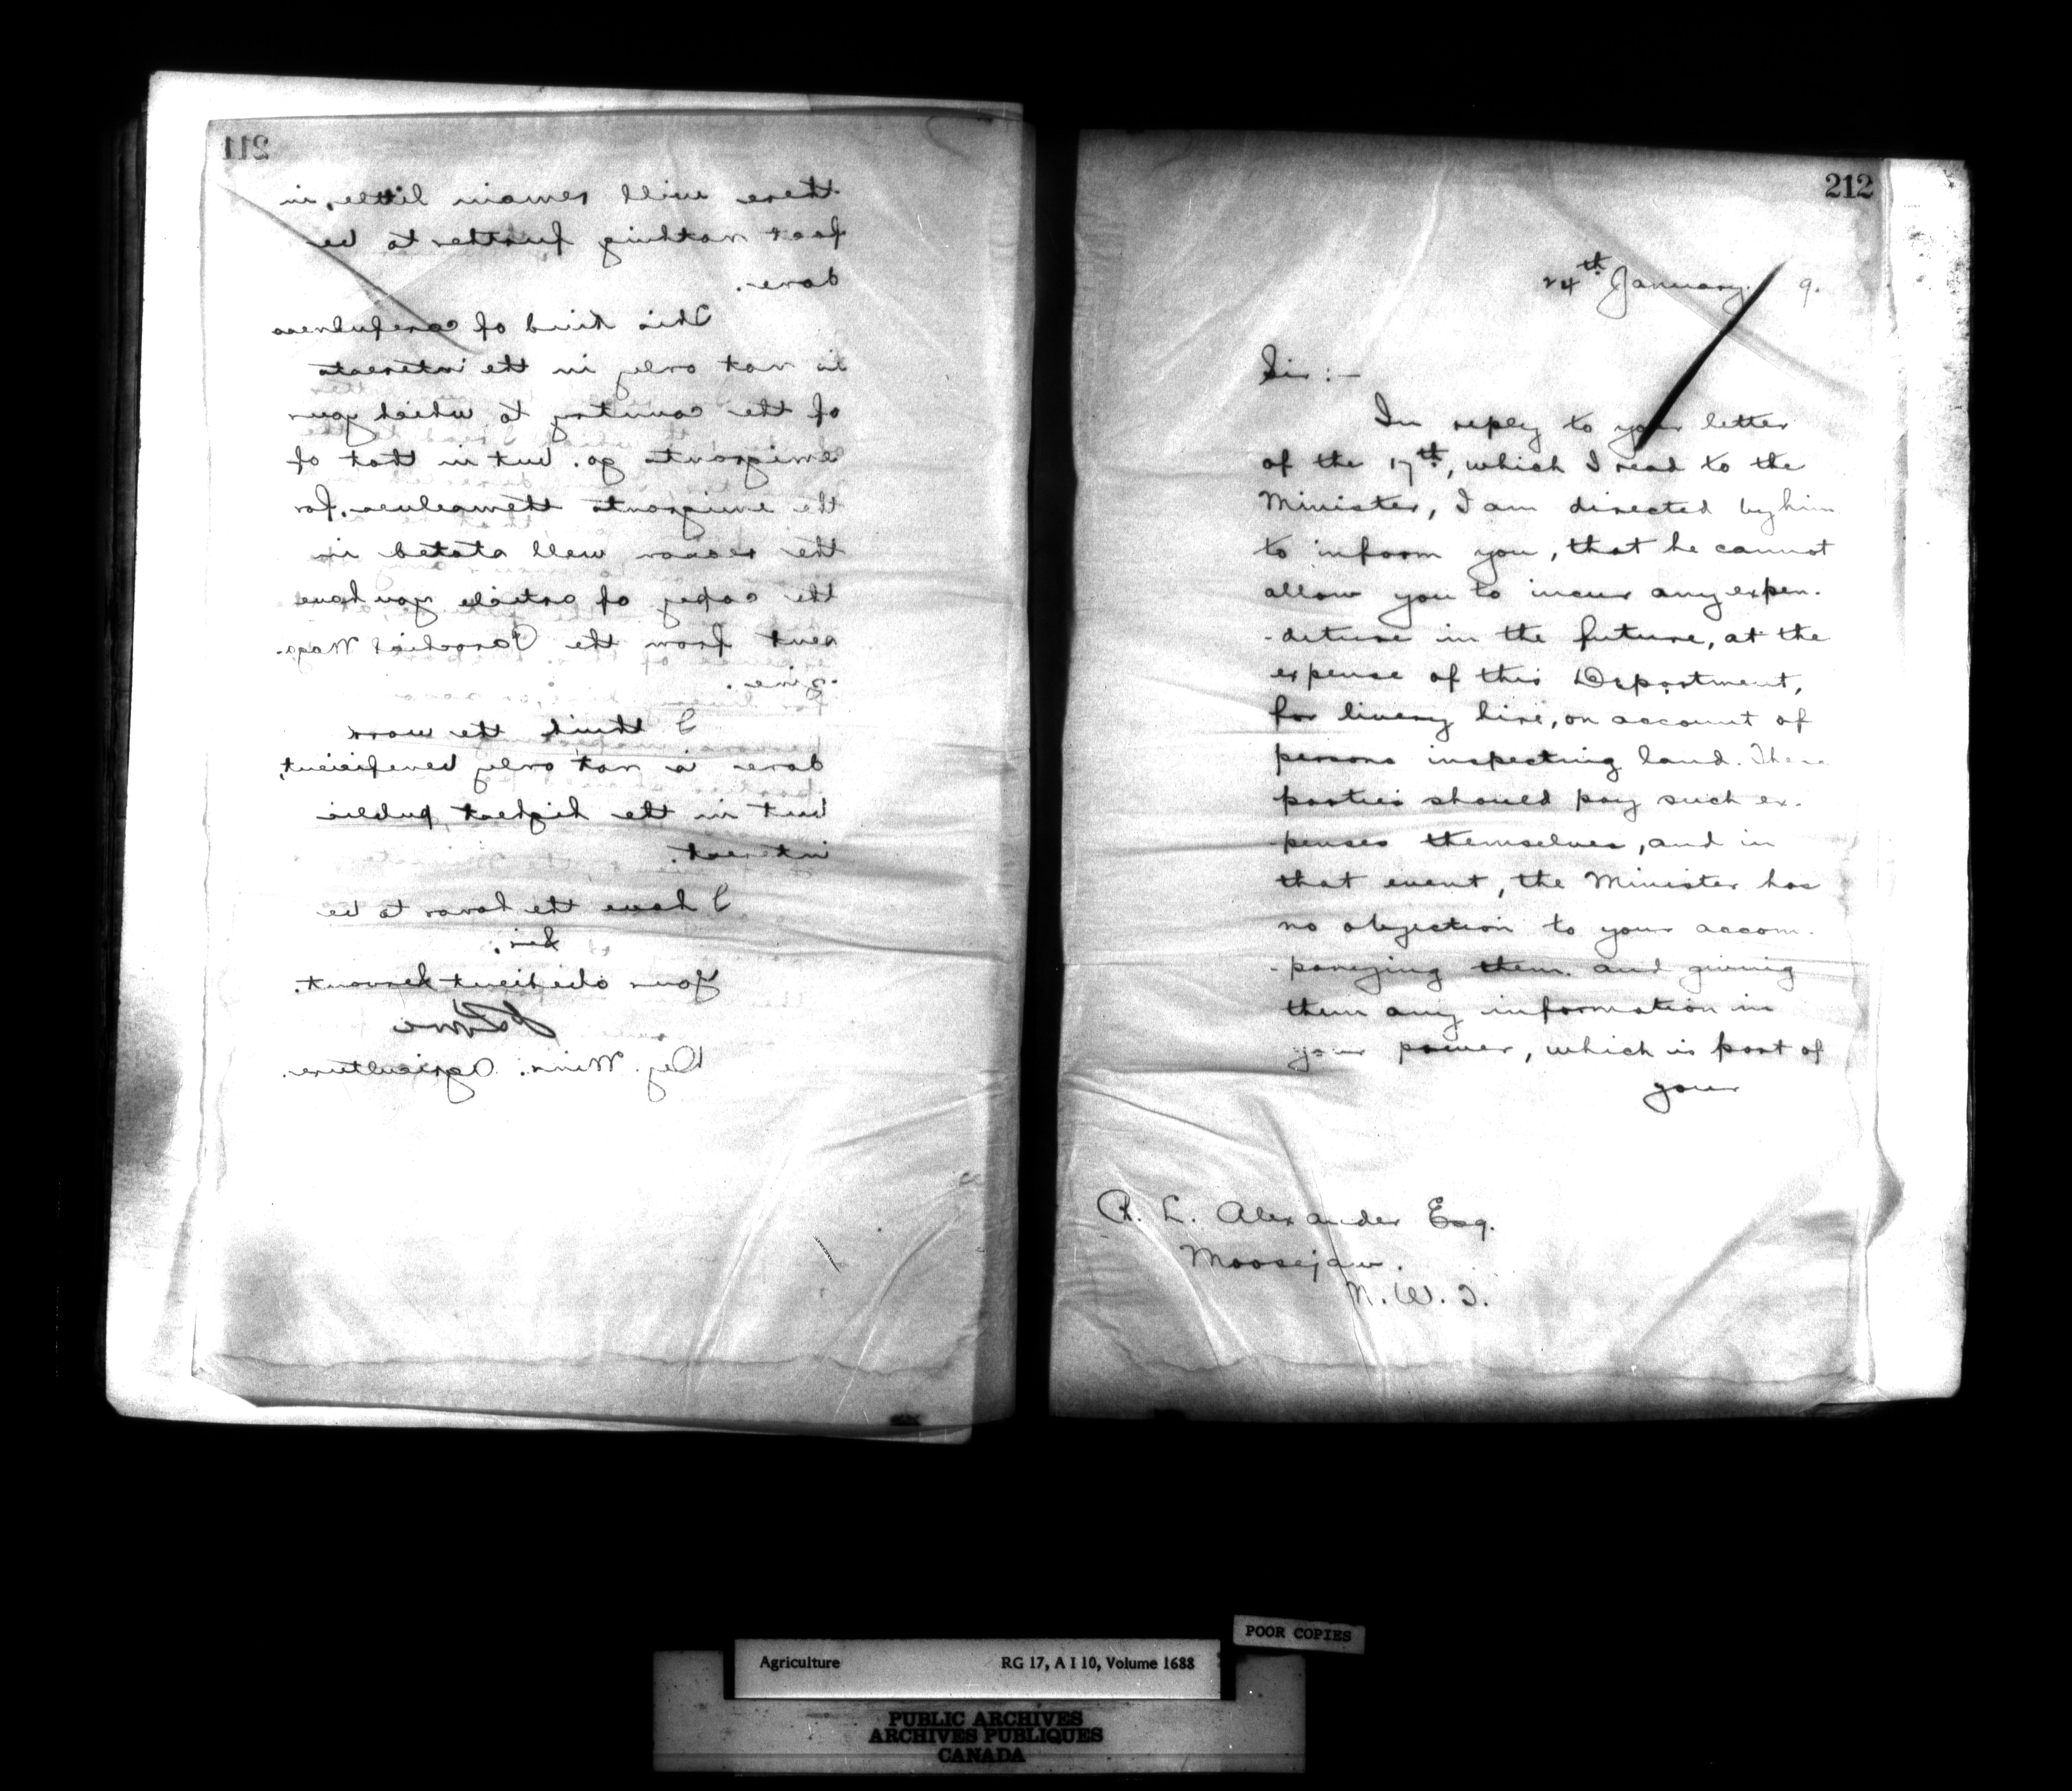 211
there will remain little, in
fact nothing further to be
done.
This kind of carefulness
is not only in the interests
of the country to which your
emigrants go. but in that of
the emigrants themselves, for
the reason well stated in
the copy of article you have
sent from the Parochial Maga-
-zine.
I think the work
done is not only beneficient,
but in the highest public
interest.
I have the honor to be
Sir,
Your obedient Servant.
J Lowe
Dep. Minr. Agriculture.
212
24th January 9.
Sir :-
In reply to your letter
of the 17th, which I read to the
Minister, I am directed by him
to inform you, that he cannot
allow you to incur any expen-
-diture in the future, at the
expense of this Department,
for livery hire, on account of
persons inspecting land. These
parties should pay such ex-
penses themselves, and in
that event, the Minister has
no objection to your accom-
-panying them. and giving
them any information in
your power, which is part of
your
R. L. Alexander Esq.
Moosejaw.
N. W. T.
POOR COPIES
Agriculture RG 17, A I 10, Volume 1688
PUBLIC ARCHIVES
ARCHIVES PUBLIQUES
CANADA